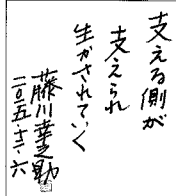 支える側が
支えられ
生かされていく
藤川幸之助
二〇一五・十二・六